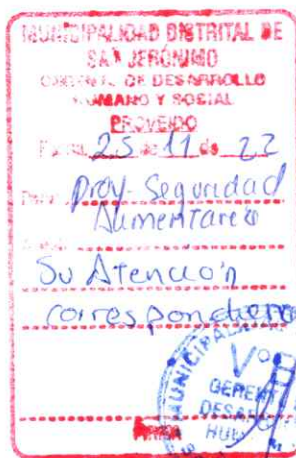 MUNICIPALIDAD DISTRITAL DE
SAN JERÓNIMO
DE DESARROLLO
HUMANO Y SOCIAL
PROVEIDO
25 de 11 de 22
Proy-Seguridad
Alimentaria
Su Atención
correspondiente
MUNICIPALI
V°
GEREN
DESAR
HU
FIRMA